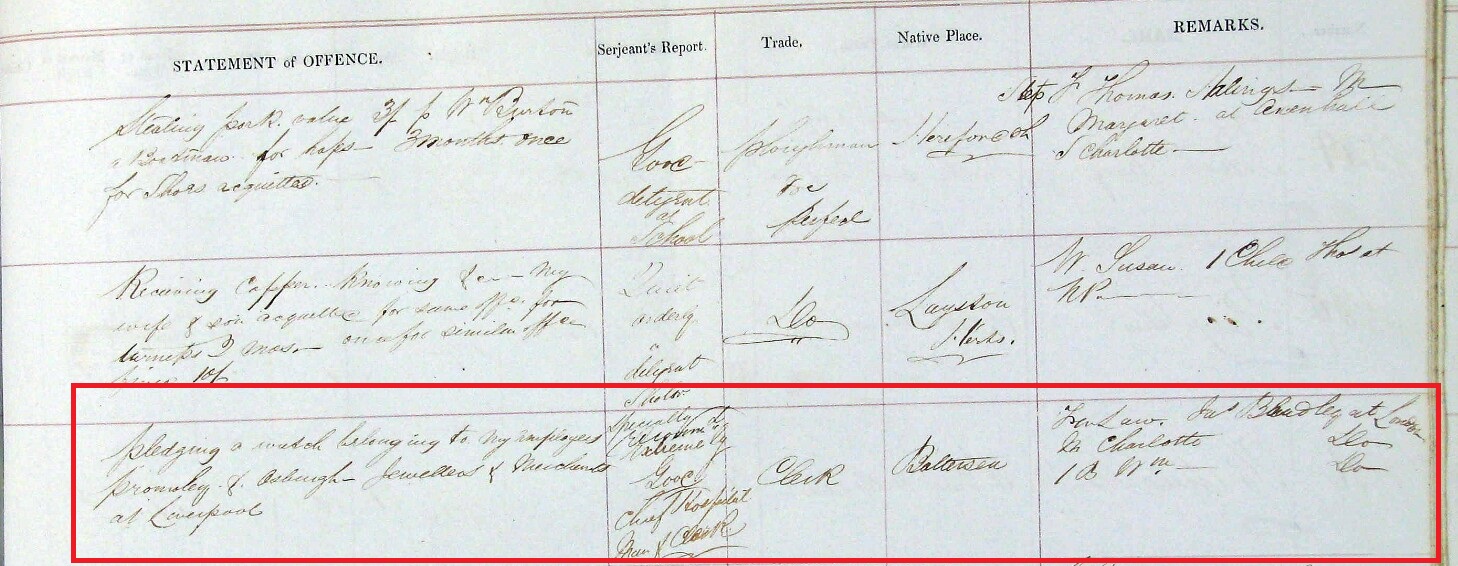 STATEMENT of OFFENCE.
Serjeant's Report.
Trade,
Native Place.
REMARKS.
Stealing pork value 3/ p Wm Burton
for hops 3 months once
for Shoes acquitted
Good
diligent
at
School
ploughman
Hereford
Thomas
Margaret at
S Charlotte
Receiving Copper Knowing &c My
wife & son acquitted for same offe for
turneps 2 mos. once for similar offce
10/
Quiet
orderly
&
diligent
Do
Herts.
W Susan 1 Child Thos at
NP
pledging a watch belonging to my employers
promoley & Jewellers & Merchants
at Liverpool
Specially
recommd
Extremely
Good
Chief Hospital
& Clerk
Clerk
Battersea
Law. Jas Bradley at London
M Charlotte Do
1 B Wm Do